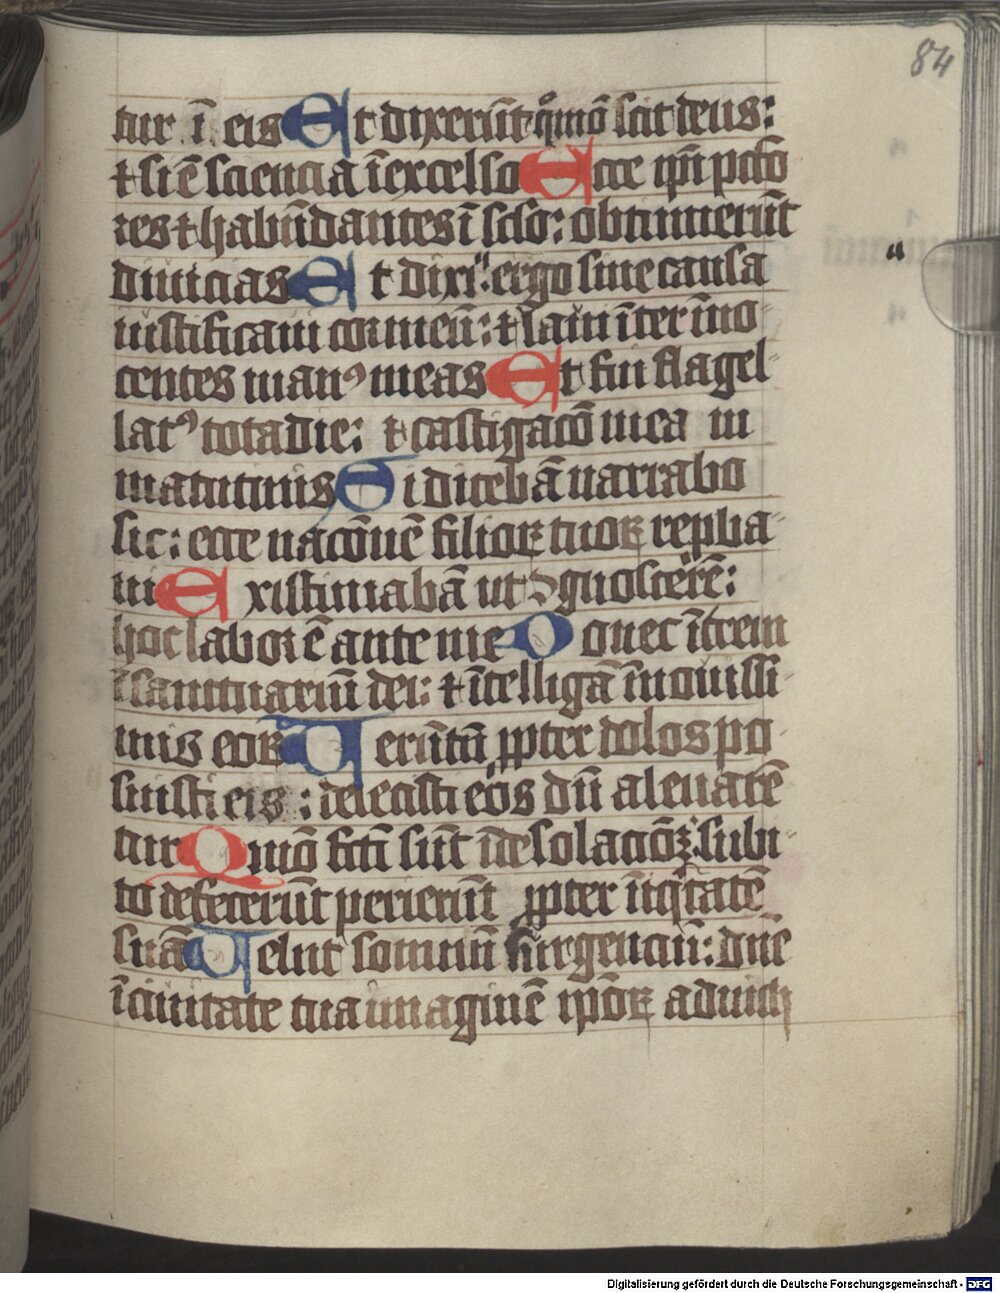 84
tur ī eis Et dixerūt qͦmō scit deus:
⁊ si ē sciencia ī excelso Ecce ip̄i pctō
res ⁊ habūdantes ī sclo: obtinuerūt
diuicias Et dixi: ergo sine causa
iustificaui cor meū: ⁊ laui īter īno
centes manꝰ meas Et fui flagel
latꝰ tota die: ⁊ castigacō mea in
matutinis Si dicebā narrabo
sic: ecce nacōnē filioꝝ tuoꝝ reproba
ui Existimabā ut ꝯgnoscerē:
hoc labor ē ante me Donec ītrem
ī sanctuariū dei: ⁊ ītelligā ī nouissi
mis eoꝝ Uerūtn̄ ꝓpter dolos po
suisti eis: deiecisti eos dū aleuarē
tur Qūmō fc̄ti sūt ī desolacōꝫ: subi
to defecerūt perierunt ꝓpter īiqͥtatē
suā Uelut somniū surgenciū: dn̄e
ī ciuitate tua imaginē ip̄oꝝ ad nich
Digitalisierung gefördert durch die Deutsche Forschungsgemeinschaft - DFG